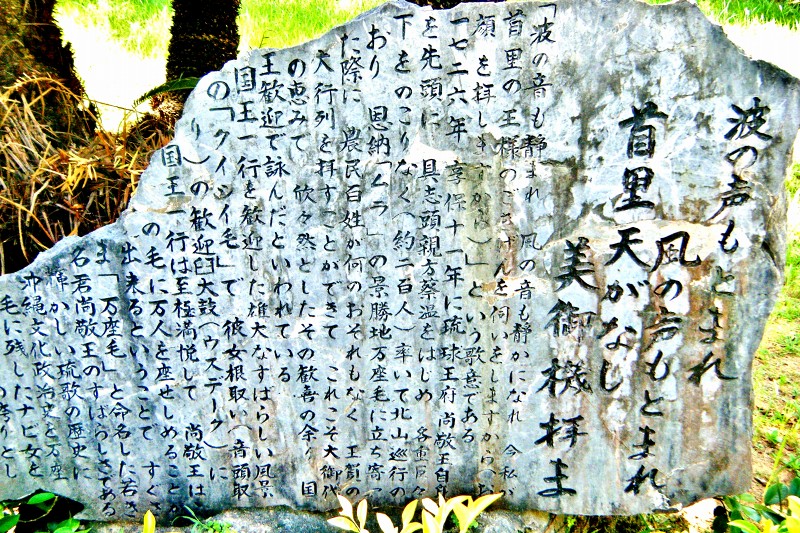 波の声もとまれ
風の声もとまれ
首里天がなし
美御機拝ま
「波の音も静まれ 風の音も静かになれ 今私が
首里の王様のごきげんを伺いをしますから(お
顔を拝しますから)」という歌意である
一七二六年 享保十一年に琉球王府尚敬王自
を先頭に 具志頭親方蔡温をはじめ
下をのこりなく(約二百人)率いて北山巡行の
おり 恩納「ムラ」の景勝地万座毛に立ち寄っ
た際に 農民百姓が何のおそれもなく 王顔の
大行列を拝すことができて これこそ大御代
の恵みで 欣々然としたその歓喜の余り 国
王歓迎で詠んだといわれている
国王一行を歓迎した雄大なすばらしい風景
の「クイシイ毛」で 彼女根取い(音頭取
り)の歓迎臼太鼓(ウスデーク)に
国王一行は至極満悦して 尚敬王は
の毛に万人を座せしめることが
出来るということで すぐさ
ま「万座毛」と命名した若き
名君尚敬王のすばらしさである
輝かしい琉歌の歴史に
沖縄文化政治史を万座
毛に残したナビ女を